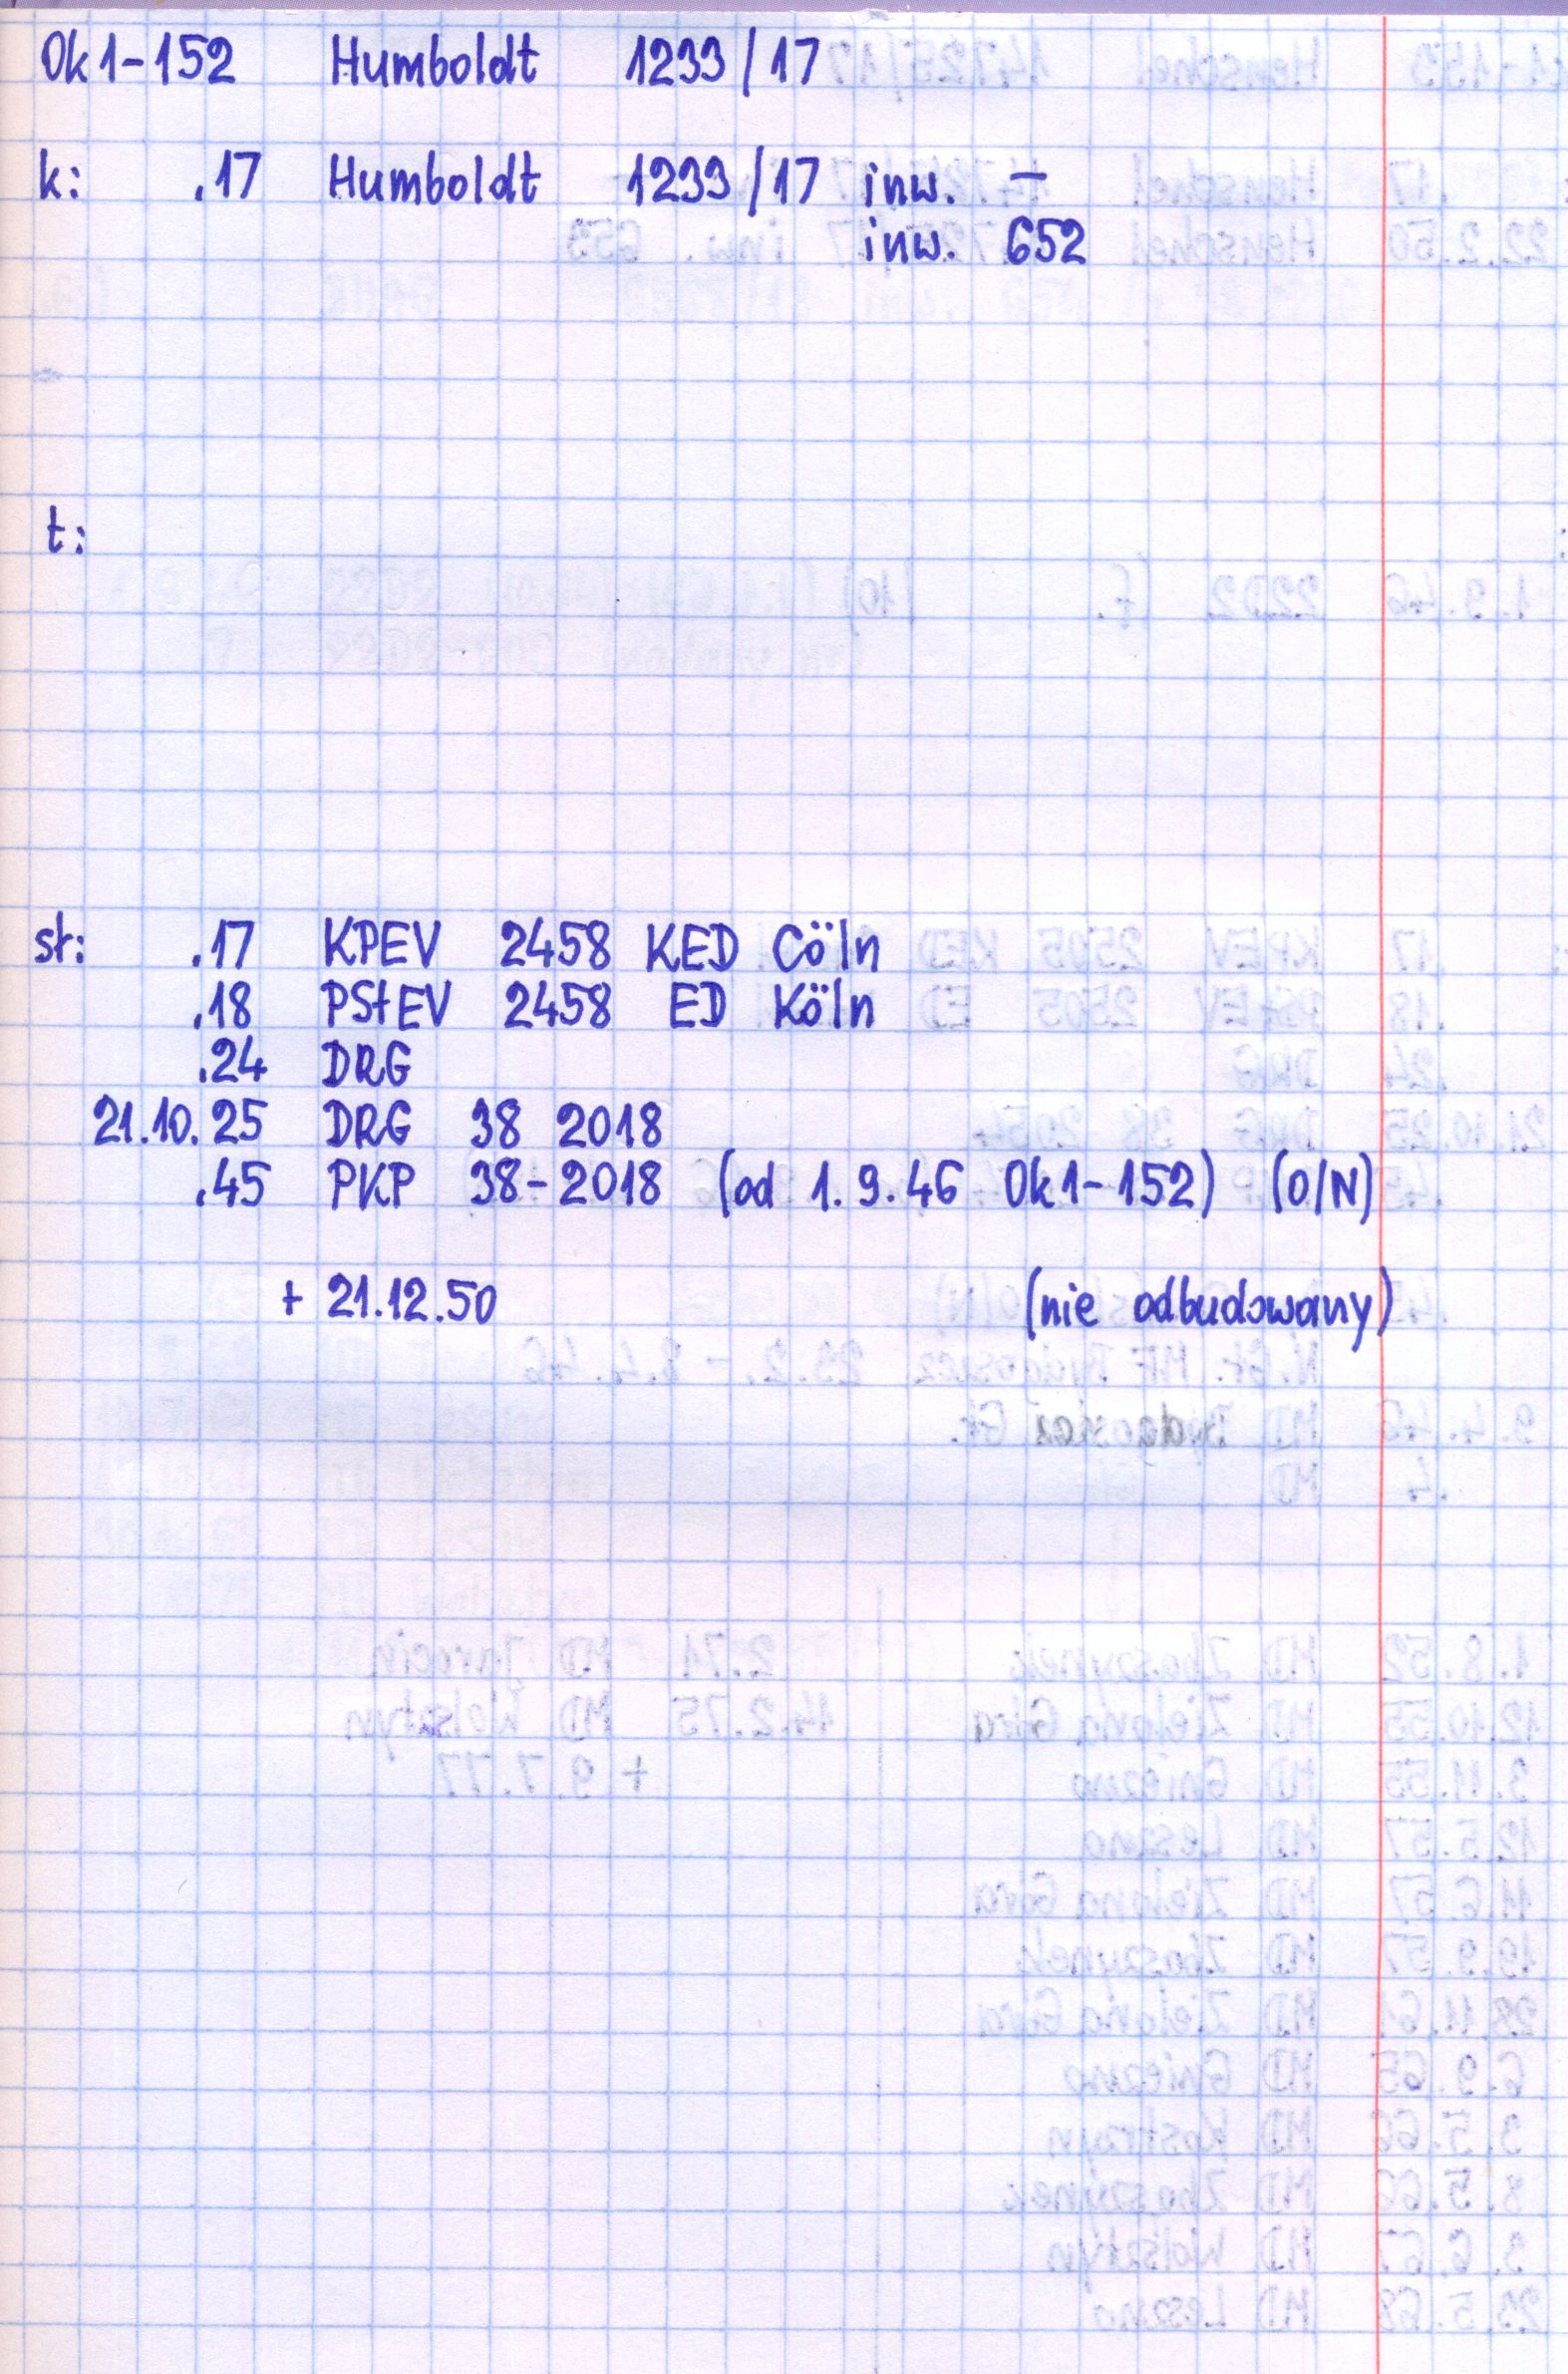 Ok1-152 Humboldt 1233/17
k: .17 Humboldt 1233/17 inw. –
inw. 652
t:
st: .17 KPEV 2458 KED Cöln
.18 PStEV 2458 ED Köln
.24 DRG
21.10.25 DRG 38 2018
.45 PKP 38-2018 (od 1.9.46 Ok1-152) (O/N)
+ 21.12.50 (nie odbudowany)